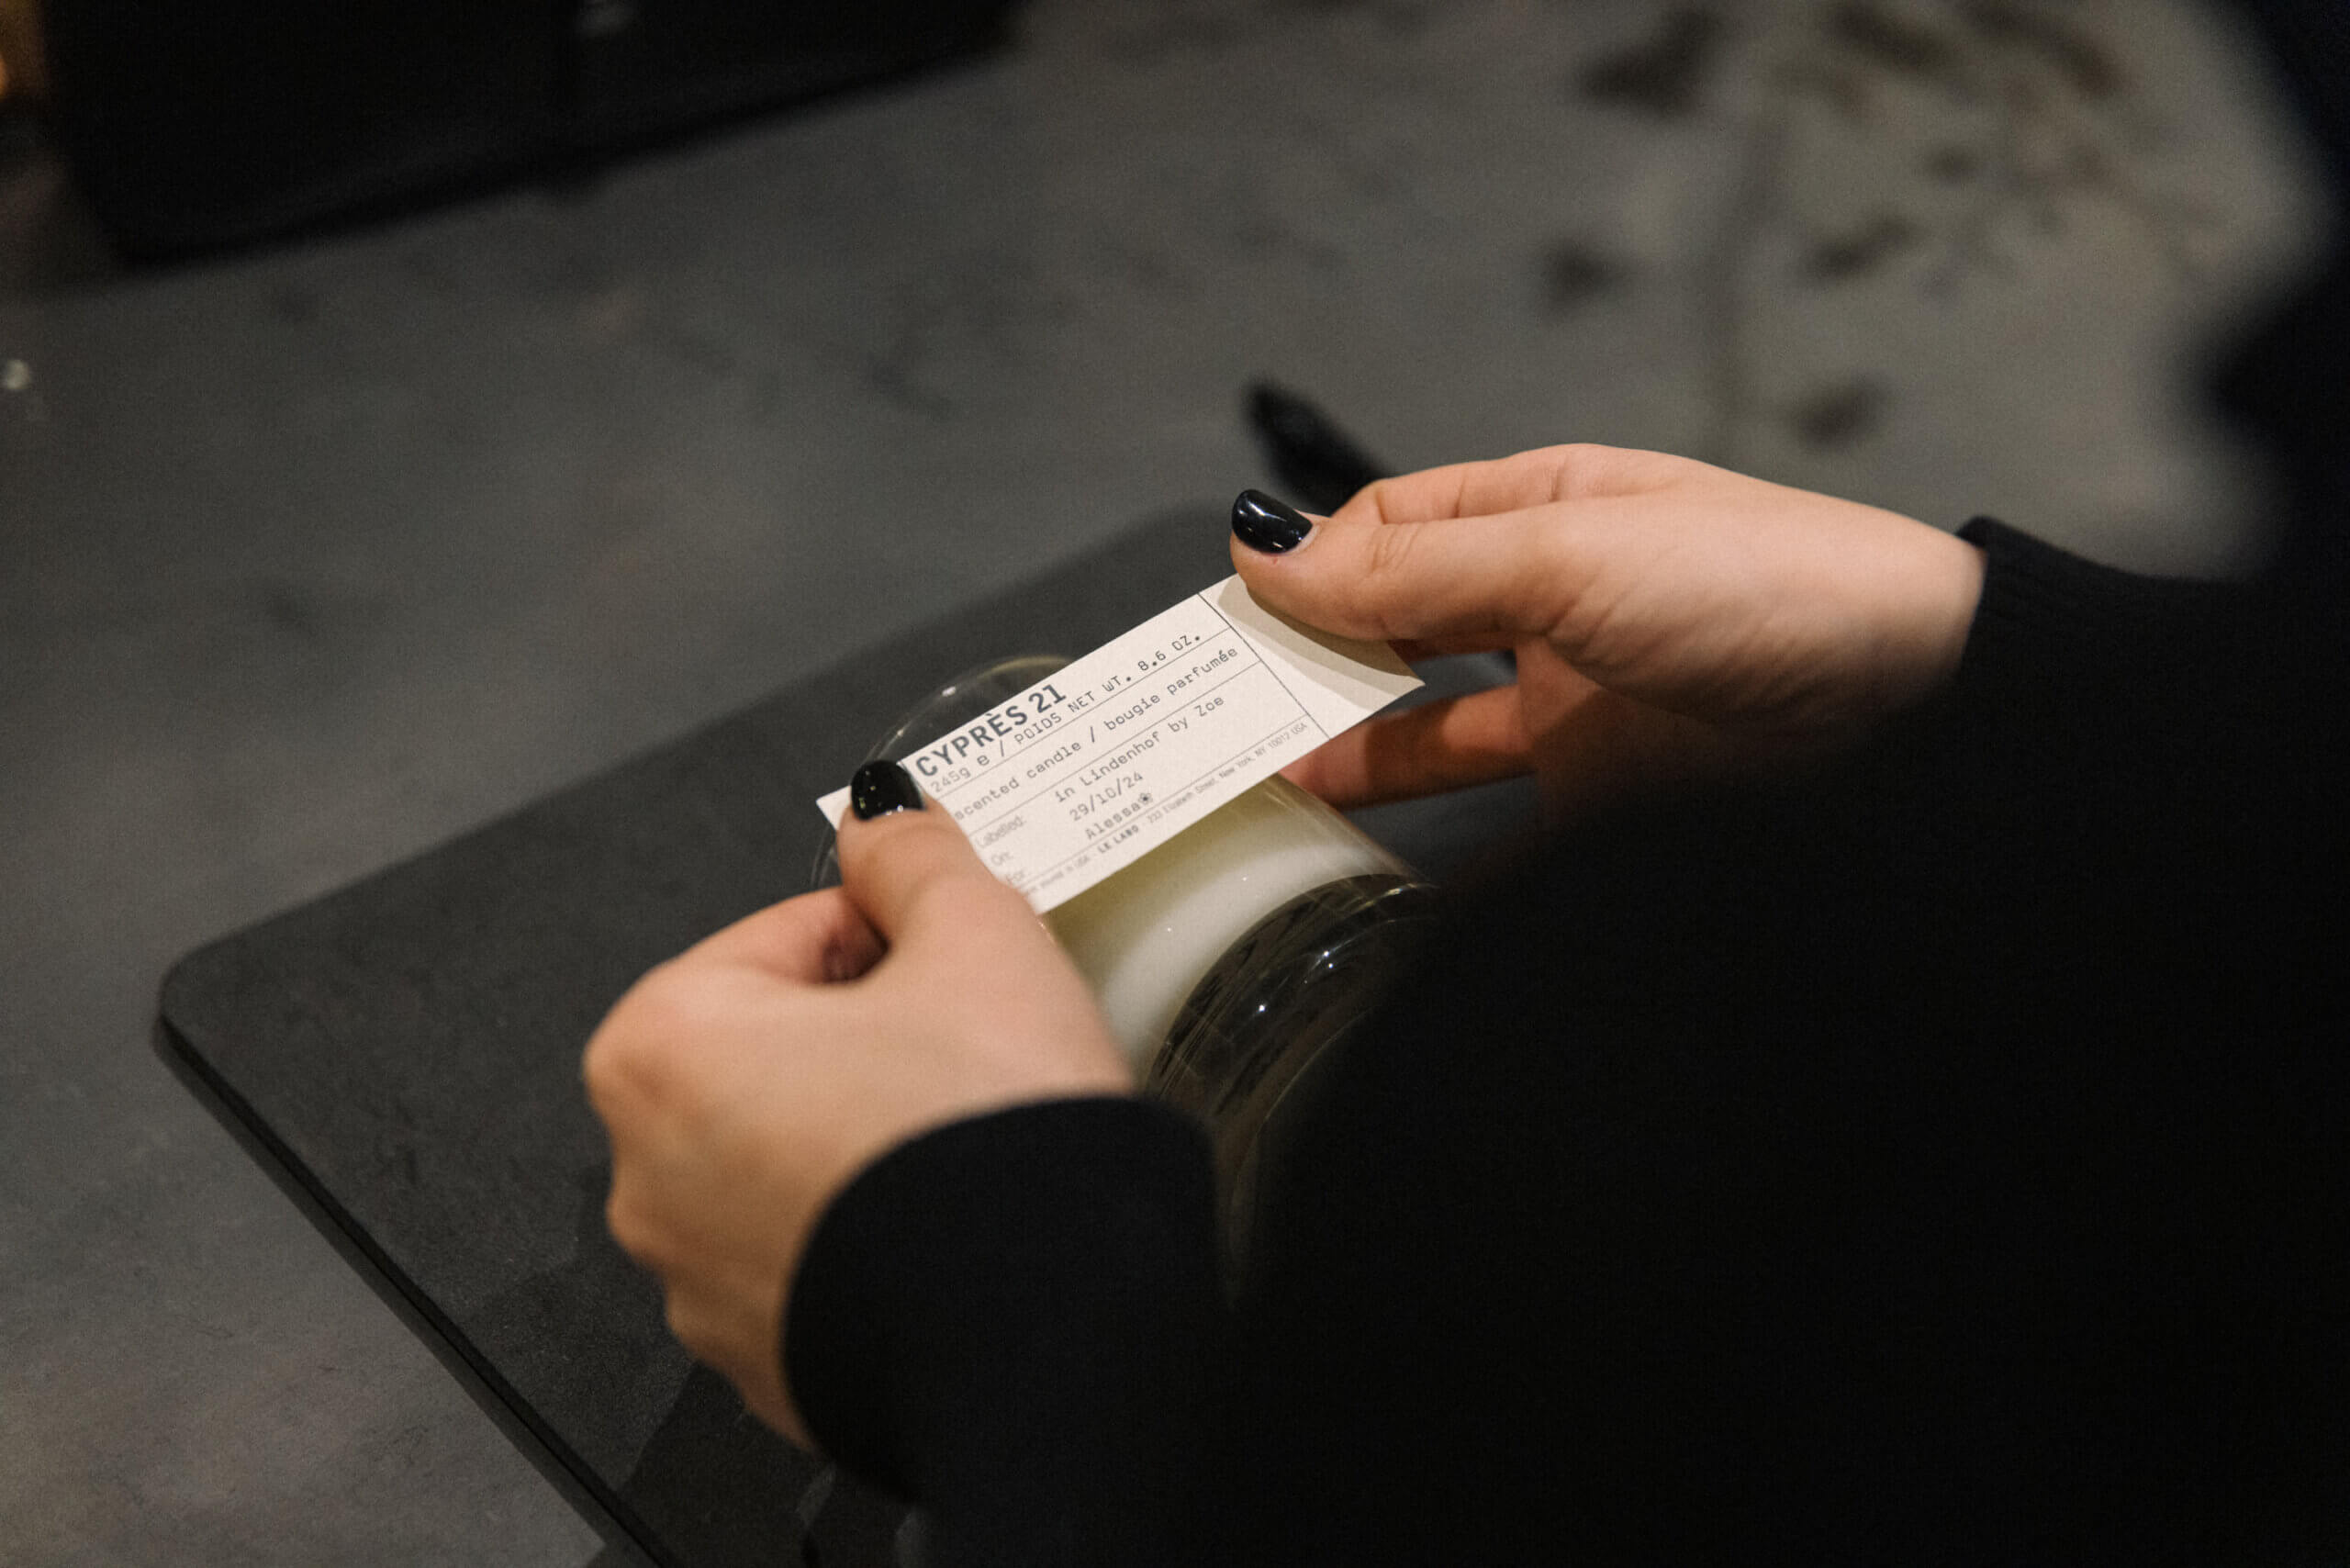 CYPRÈS 21
245g e / POIDS NET WT. 8.6 OZ.
scented candle / bougie parfumée
Labelled: in Lindenhof by Zoe
On: 29/10/24
For: Alessa❀
in USA - LE LABO - 233 Elizabeth Street, New York, NY 10012 USA